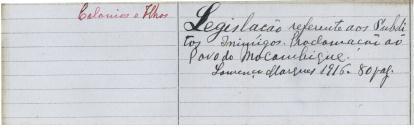 Colonias e Ilhas
Legislação referente aos Subdi-
tos Inimigos. Proclamação ao
Povo de Moçambique.
Lourenço Marques 1916 - 80 pag.